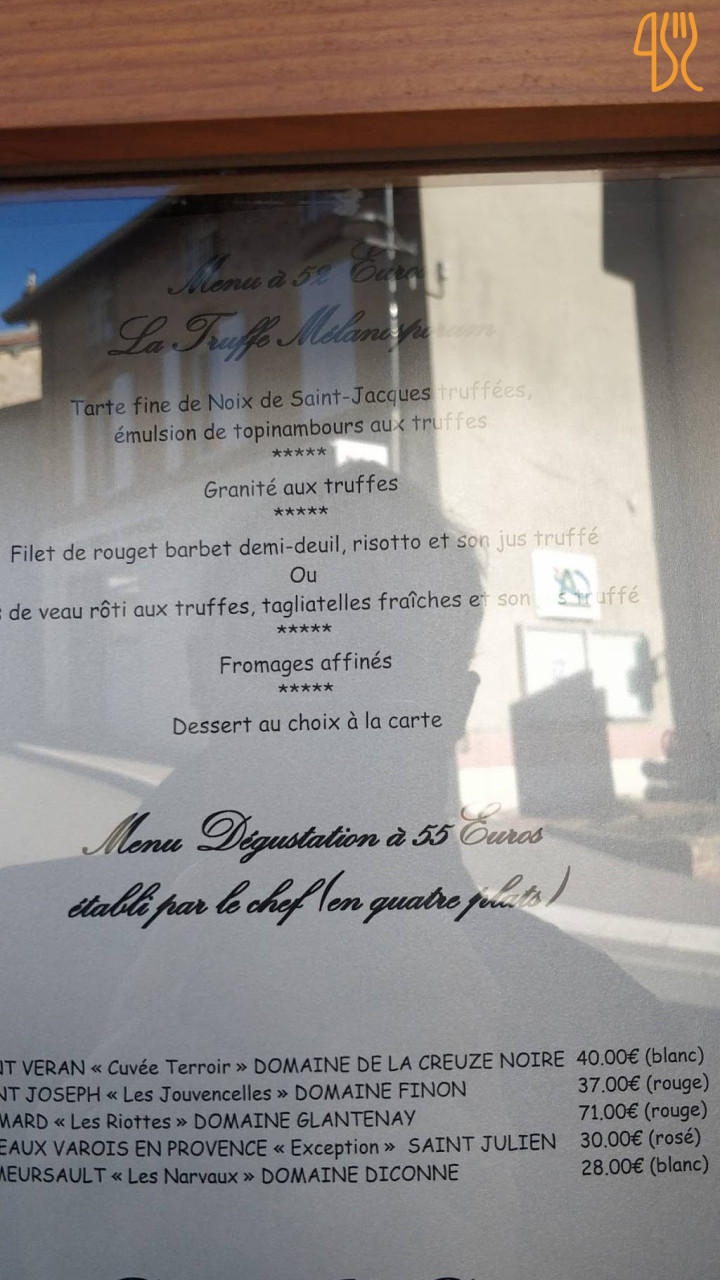 Menu à 52 Euros
La Truffe Mélanosporum
Tarte fine de Noix de Saint-Jacques truffées,
émulsion de topinambours aux truffes
*****
Granité aux truffes
*****
Filet de rouget barbet demi-deuil, risotto et son jus truffé
Ou
de veau rôti aux truffes, tagliatelles fraîches et son truffé
*****
Fromages affinés
*****
Dessert au choix à la carte
Menu Dégustation à 55 Euros
établi par le chef (en quatre plats)
NT VERAN « Cuvée Terroir » DOMAINE DE LA CREUZE NOIRE 40.00€ (blanc)
NT JOSEPH « Les Jouvencelles » DOMAINE FINON 37.00€ (rouge)
MARD « Les Riottes » DOMAINE GLANTENAY 71.00€ (rouge)
EAUX VAROIS EN PROVENCE « Exception » SAINT JULIEN 30.00€ (rosé)
MEURSAULT « Les Narvaux » DOMAINE DICONNE 28.00€ (blanc)